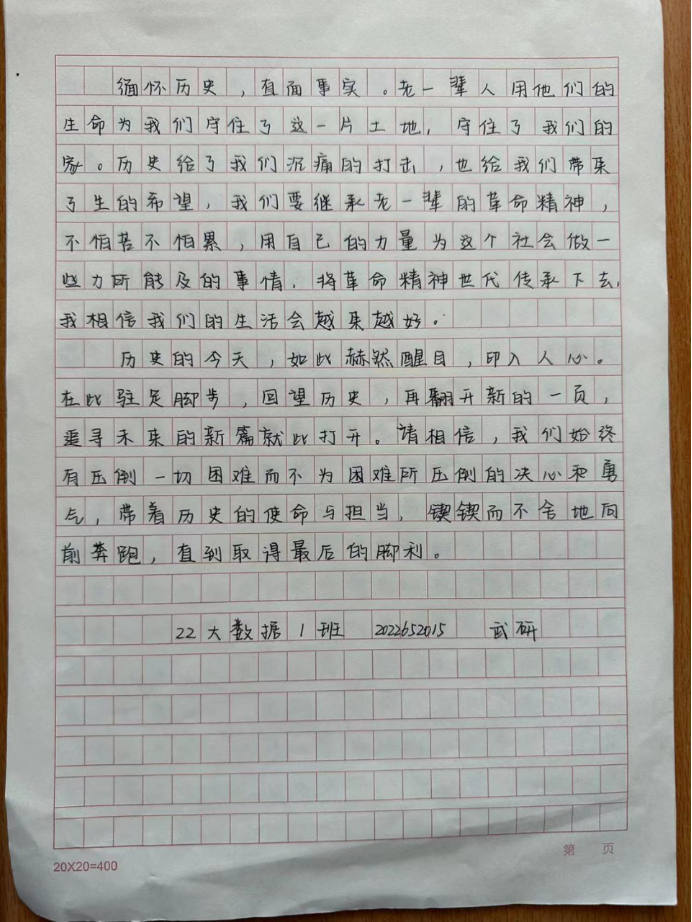 缅怀历史，直面事实。老一辈人用他们的
生命为我们守住了这一片土地，守住了我们的
家。历史给了我们沉痛的打击，也给我们带来
了生的希望，我们要继承老一辈的革命精神，
不怕苦不怕累，用自己的力量为这个社会做一
些力所能及的事情，将革命精神世代传承下去，
我相信我们的生活会越来越好。
历史的今天，如此赫然醒目，印入人心。
在此驻足脚步，回望历史，再翻开新的一页，
追寻未来的新篇就此打开。请相信，我们始终
有压倒一切困难而不为困难所压倒的决心和勇
气，带着历史的使命与担当，锲锲而不舍地向
前奔跑，直到取得最后的脚利。
22大数据1班 2022652015 武研
第 页
20X20=400